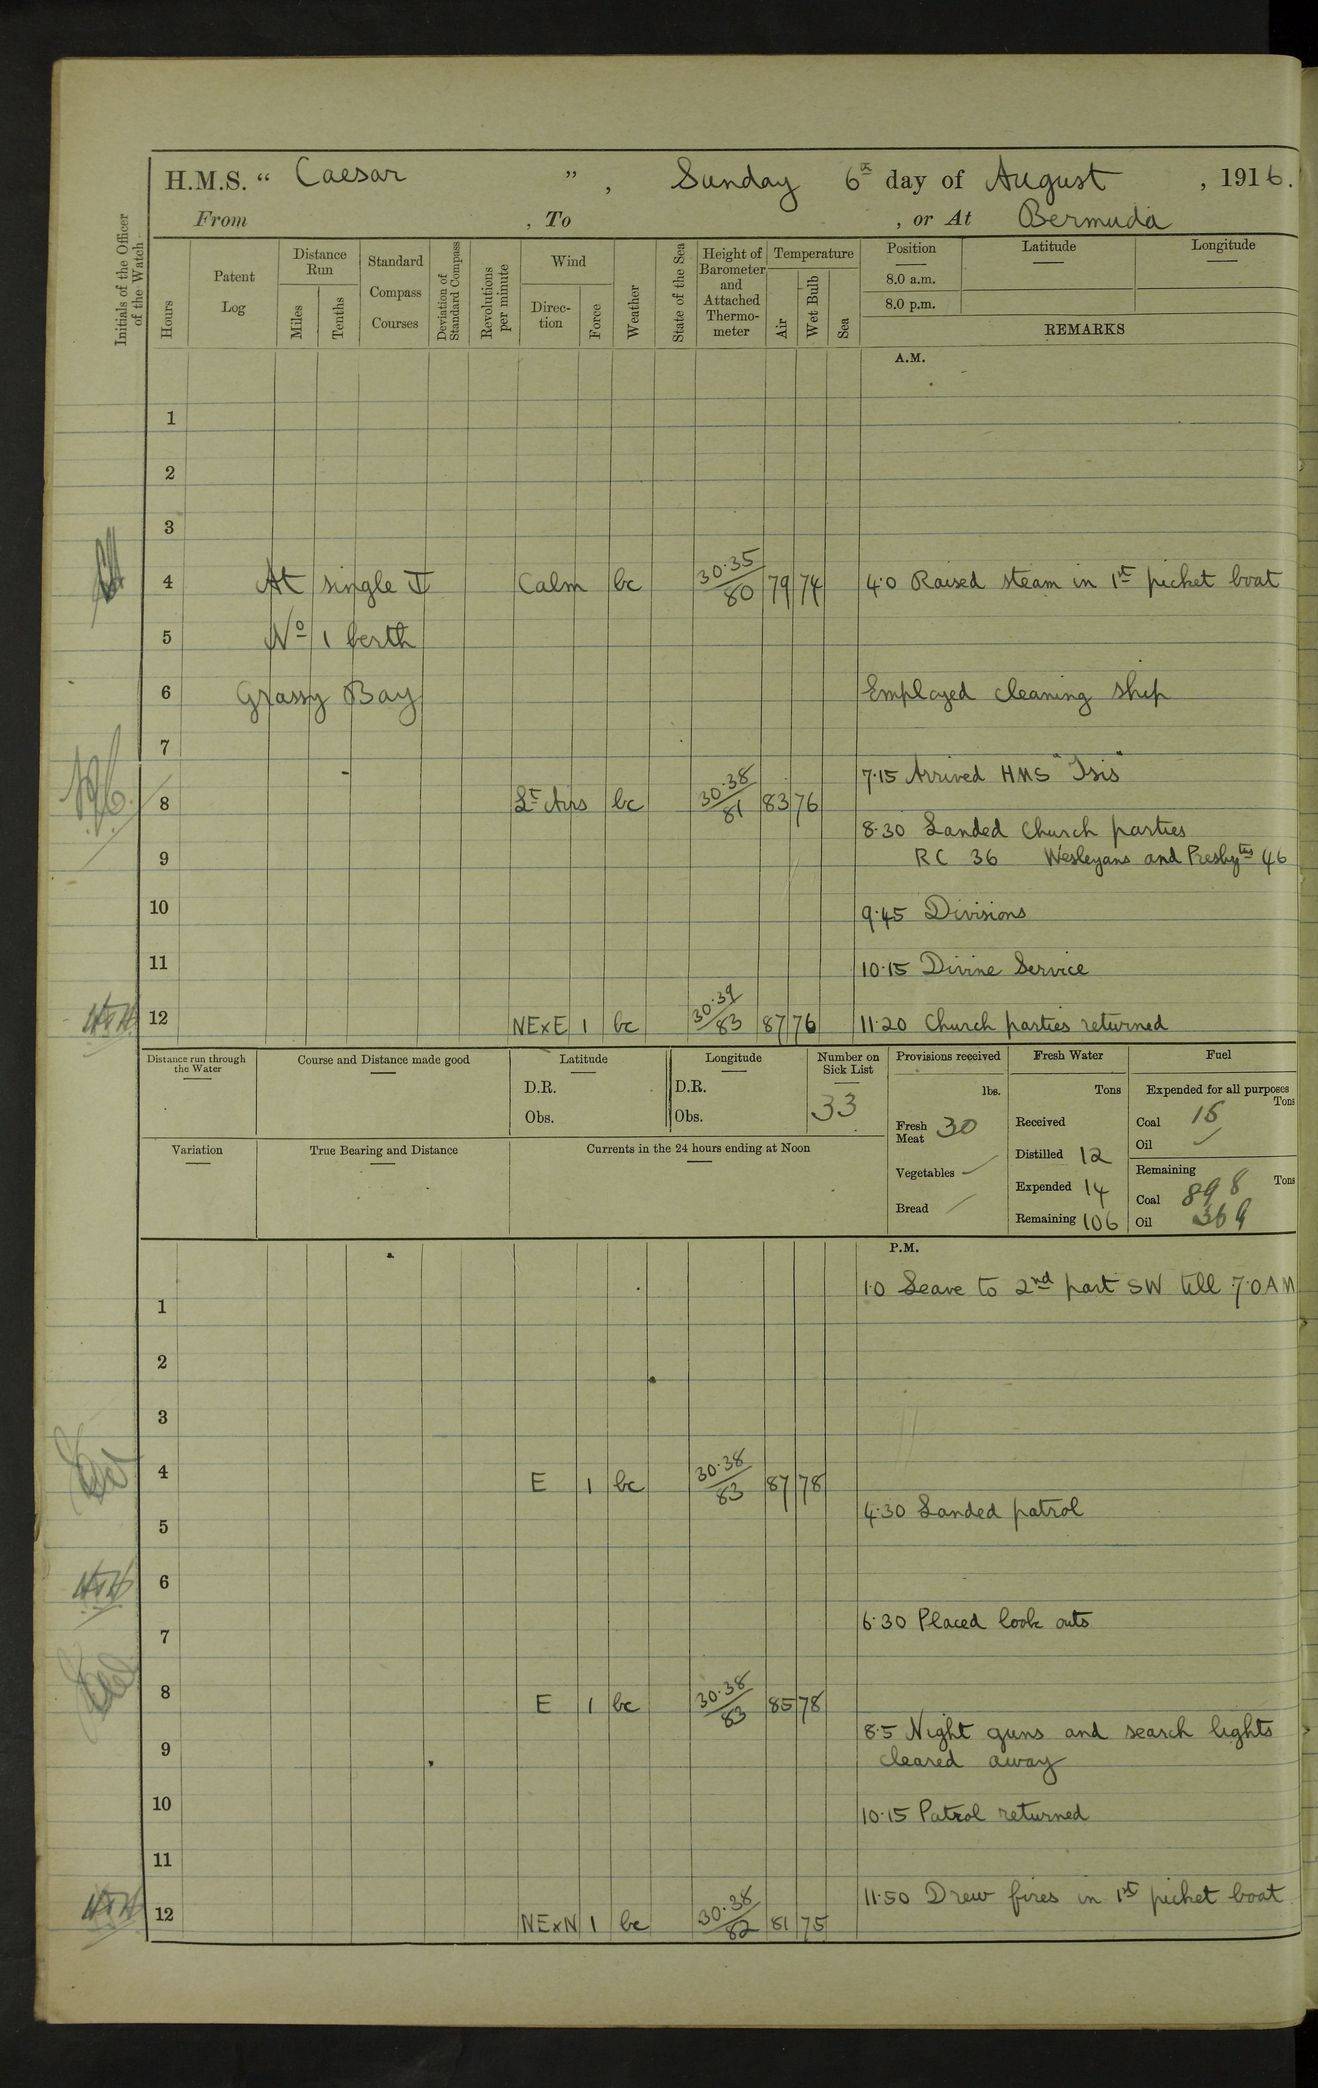 H.M.S. “ Caesar ” , Sunday 6th day of August , 1916.
From , To , or At Bermuda
Initials of the Officer of the Watch
Hours
Patent Log
Distance Run
Miles
Tenths
Standard Compass Courses
Deviation of Standard Compass
Revolutions per minute
Wind
Direction
Force
Weather
State of the Sea
Height of Barometer and Attached Thermometer
Temperature
Air
Wet Bulb
Sea
Position Latitude Longitude
8.0 a.m.
8.0 p.m.
REMARKS
A.M.
1
2
3
4 At single Calm bc 30.35/80 79 74 4.0 Raised steam in 1st picket boat
5 No 1 berth
6 Grassy Bay Employed cleaning ship
7
7.15 Arrived HMS "Isis"
8 Lt Airs bc 30.38/81 83 76
8.30 Landed Church parties
9 RC 36 Wesleyans and Presbytns 46
10 9.45 Divisions
11 10.15 Divine Service
HTH 12 NExE 1 bc 30.39/83 87 76 11.20 Church parties returned
Distance run through the Water
Course and Distance made good
Latitude
D.R.
Obs.
Longitude
D.R.
Obs.
Number on Sick List
33
Provisions received
lbs.
Fresh Meat 30
Vegetables
Bread
Fresh Water
Tons
Received
Distilled 12
Expended 14
Remaining 106
Fuel
Expended for all purposes
Tons
Coal 15
Oil
Remaining
Tons
Coal 898
Oil 369
Variation
True Bearing and Distance
Currents in the 24 hours ending at Noon
P.M.
1 1.0 Leave to 2nd part SW till 7.0 AM
2
3
4 E 1 bc 30.38/83 87 78
4.30 Landed patrol
5
HTH 6
6.30 Placed look outs
7
8 E 1 bc 30.38/83 85 78
8.5 Night guns and search lights
9 cleared away
10 10.15 Patrol returned
11
11.50 Drew fires in 1st picket boat
HTH 12 NExN 1 bc 30.38/82 81 75